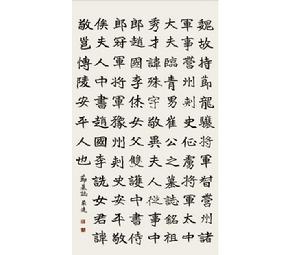 魏故持節龍驤將軍督營州諸
軍事營州刺史征虜將軍太中
大夫臨青男崔公之墓誌銘祖
秀才諱殊字敬異夫人從事中
郎趙國李休女父雙護中書侍
郎冠軍將軍豫州刺史安平敬
侯夫人中書趙國李詵女君諱
敬邕博陵安平人也
節墓誌